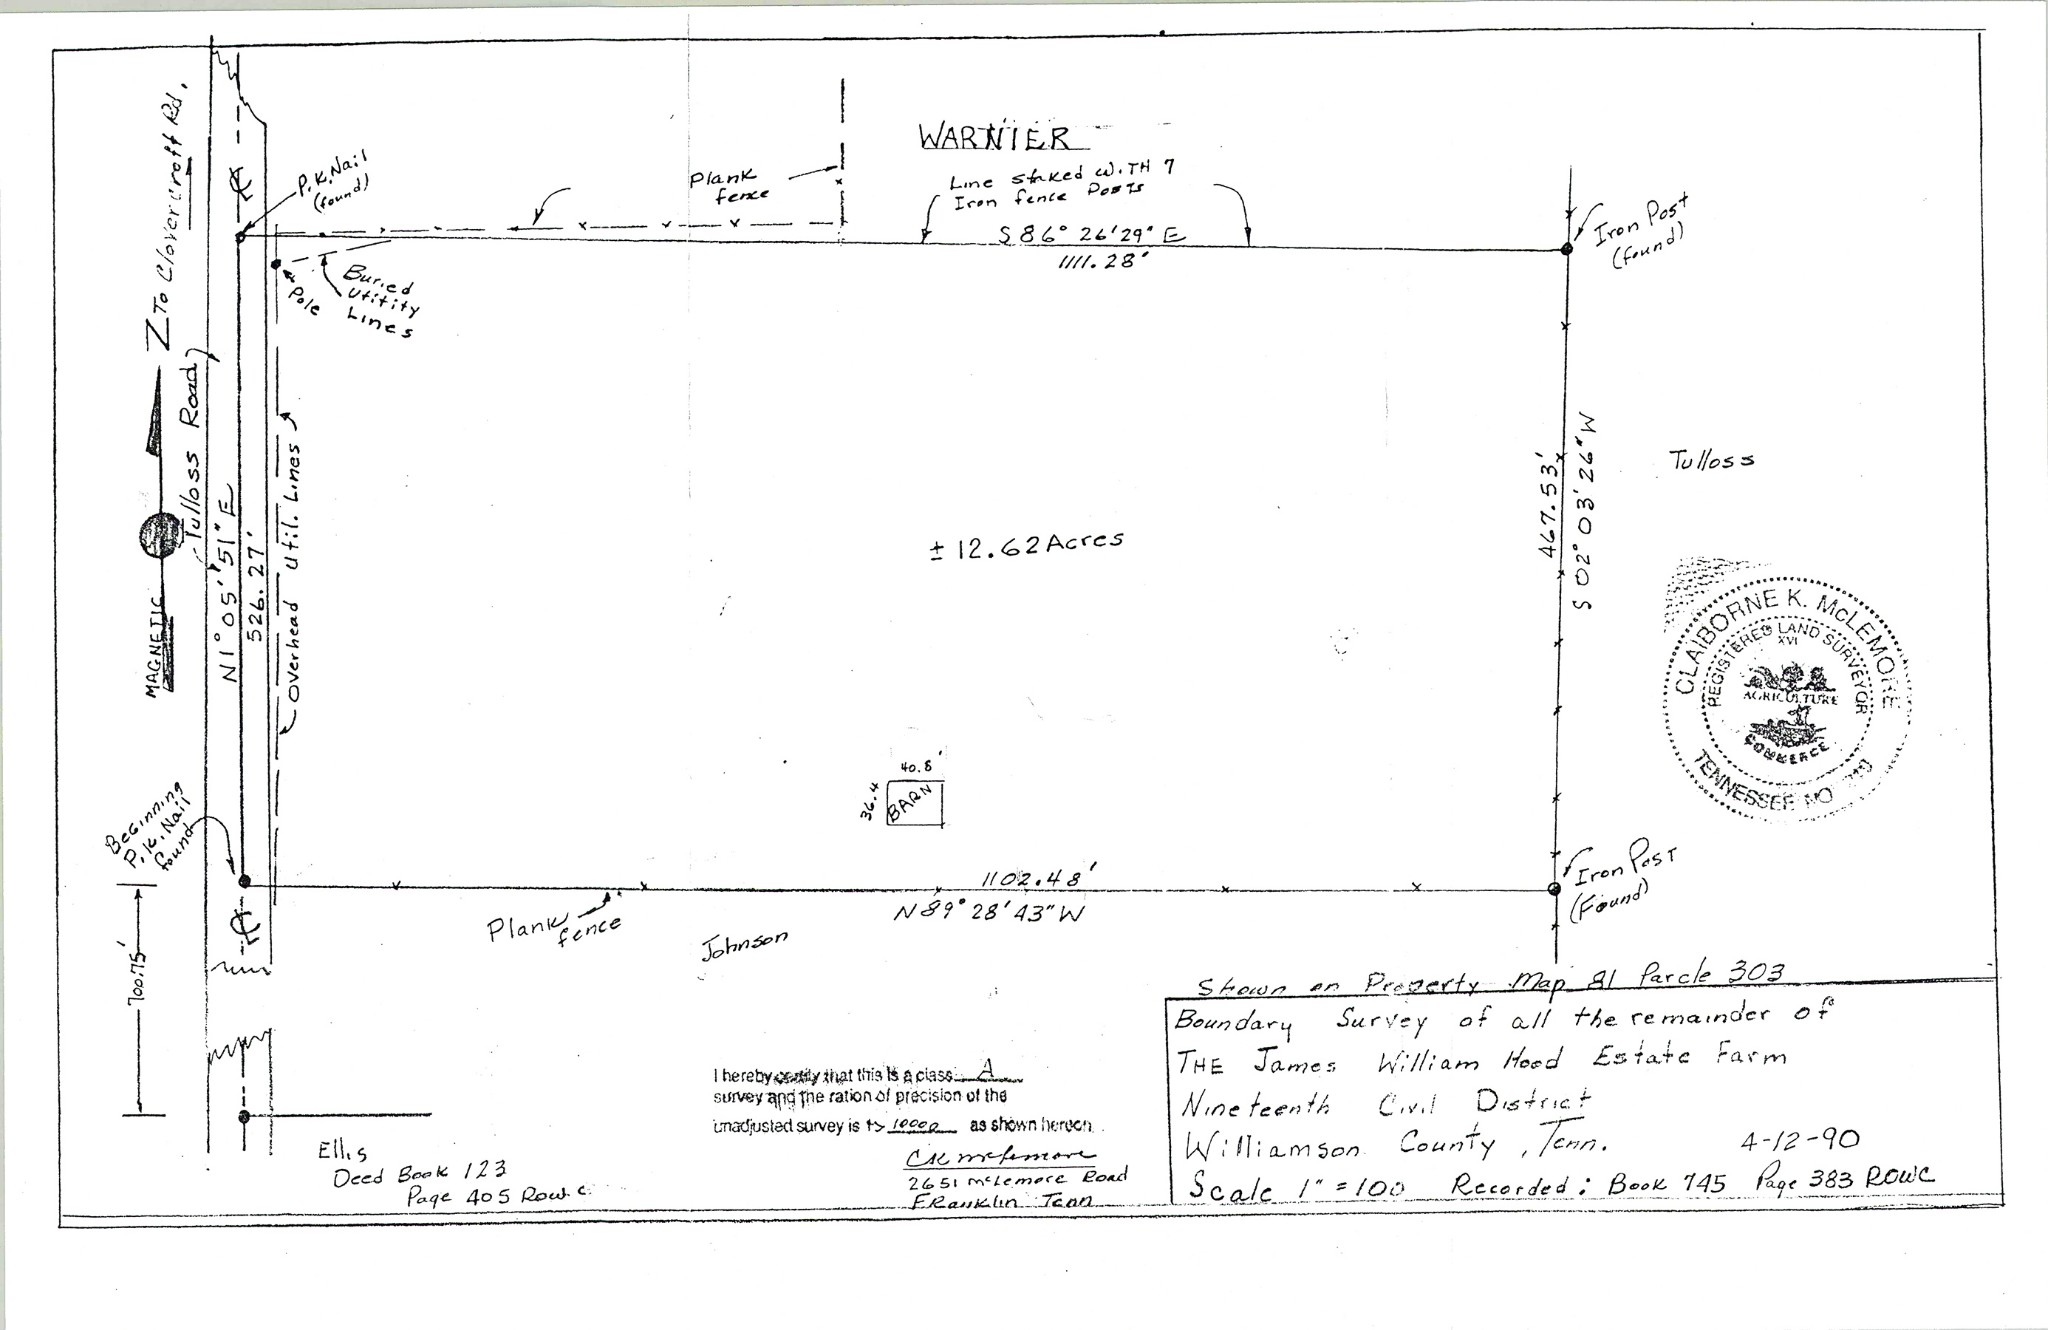 WARNIER
Line staked WiTH 7
Iron fence Posts
S 86° 26' 29" E
1111.28'
Plank
fence
P.K. Nail
(found)
To Clovercroft Rd.
Pole
Buried
Utitity
Lines
Iron Post
(found)
Tulloss Road
MAGNETIC
N 1° 05' 51" E
526.27'
Overhead Util. Lines
± 12.62 Acres
467.53'
S 02° 03' 26" W
Tulloss
CLAIBORNE K. McLEMORE
REGISTERED LAND SURVEYOR
XVI
AGRICULTURE
COMMERCE
TENNESSEE NO
40.8'
36.4
BARN
Beginning
P.K. Nail
found
1102.48'
N 89° 28' 43" W
Plank
fence
Johnson
Iron Post
(Found)
700.75'
Ellis
Deed Book 123
Page 405 ROWC
I hereby certify that this is a class A
survey and the ration of precision of the
unadjusted survey is 1> 10000 as shown hereon.
CK McLemore
2651 McLemore Road
FRanklin Tenn
Shown on Property Map 81 Parcle 303
Boundary Survey of all the remainder of
THE James William Hood Estate Farm
Nineteenth Civil District
Williamson County, Tenn. 4-12-90
Scale 1" = 100 Recorded: Book 745 Page 383 ROWC